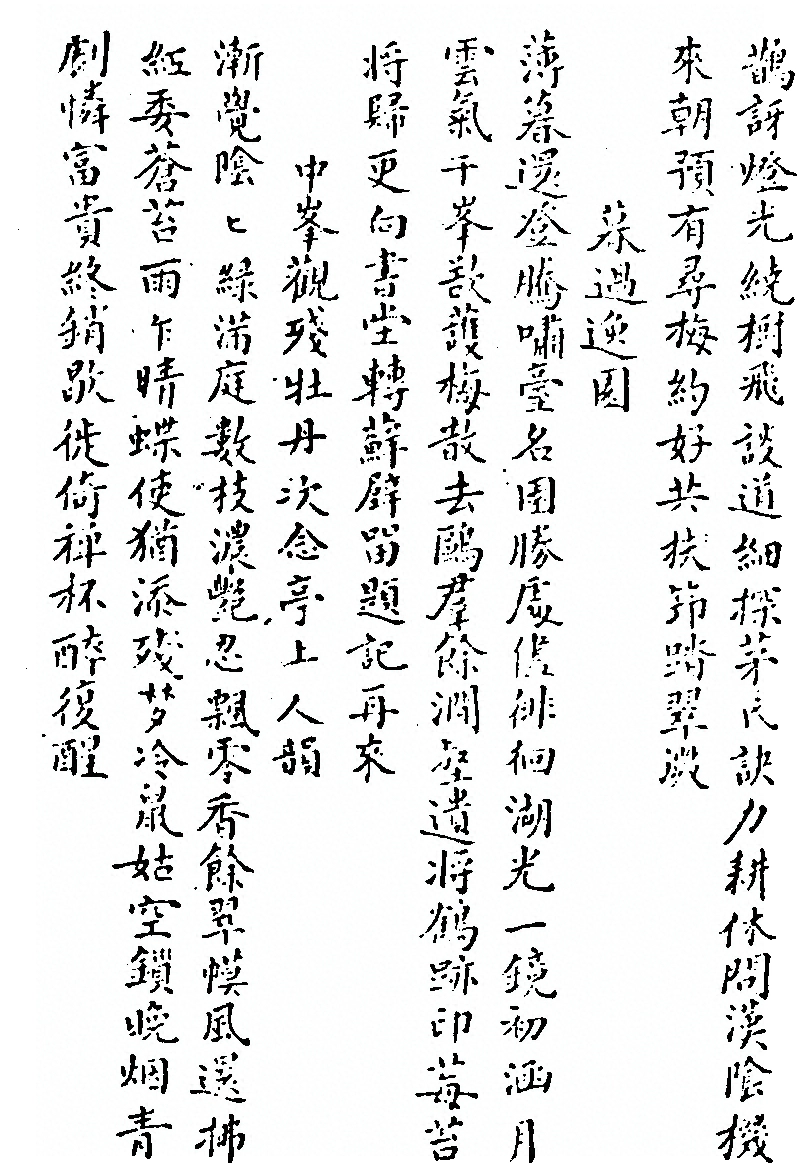 鵲訝燈光繞樹飛談道細探茅氏訣力耕休問漢陰機
來朝預有尋梅約好共扶筇踏翠微
暮過逸園
薄暮還登騰嘯臺名園勝處僅徘徊湖光一鏡初涵月
雲氣千峯欲護梅散去鷗羣餘澗壑遺將鶴跡印莓苔
將歸更向書堂轉蘚壁留題記再來
中峯觀殘牡丹次念亭上人韻
漸覺陰〻綠滿庭數枝濃艷忍飄零香餘翠幙風還拂
紅委蒼苔雨乍晴蝶使猶添殘夢冷鼠姑空鎖晚烟青
劇憐富貴終銷歇徙倚禪杯醉復醒